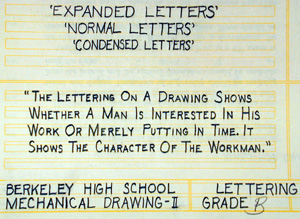 'EXPANDED LETTERS'
'NORMAL LETTERS'
'CONDENSED LETTERS'
"THE LETTERING ON A DRAWING SHOWS
WHETHER A MAN IS INTERESTED IN HIS
WORK OR MERELY PUTTING IN TIME. IT
SHOWS THE CHARACTER OF THE WORKMAN."
BERKELEY HIGH SCHOOL
MECHANICAL DRAWING-II
LETTERING
GRADE B